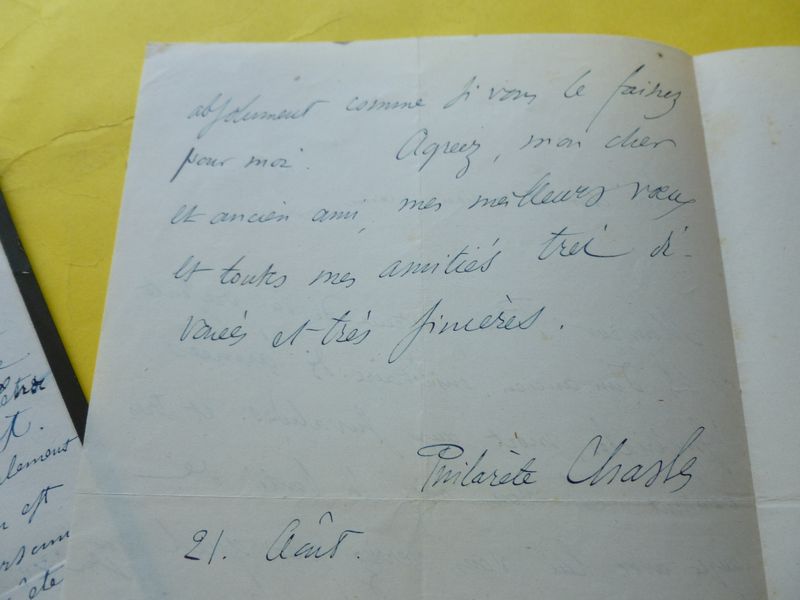 absolument comme si vous le faisiez
pour moi. Agréez, mon cher
et ancien ami, mes meilleurs vœux
et toutes mes amitiés très dé-
vouées et très sincères.
Philarète Chasles
21. Août.
être
t.
alement
est
ête